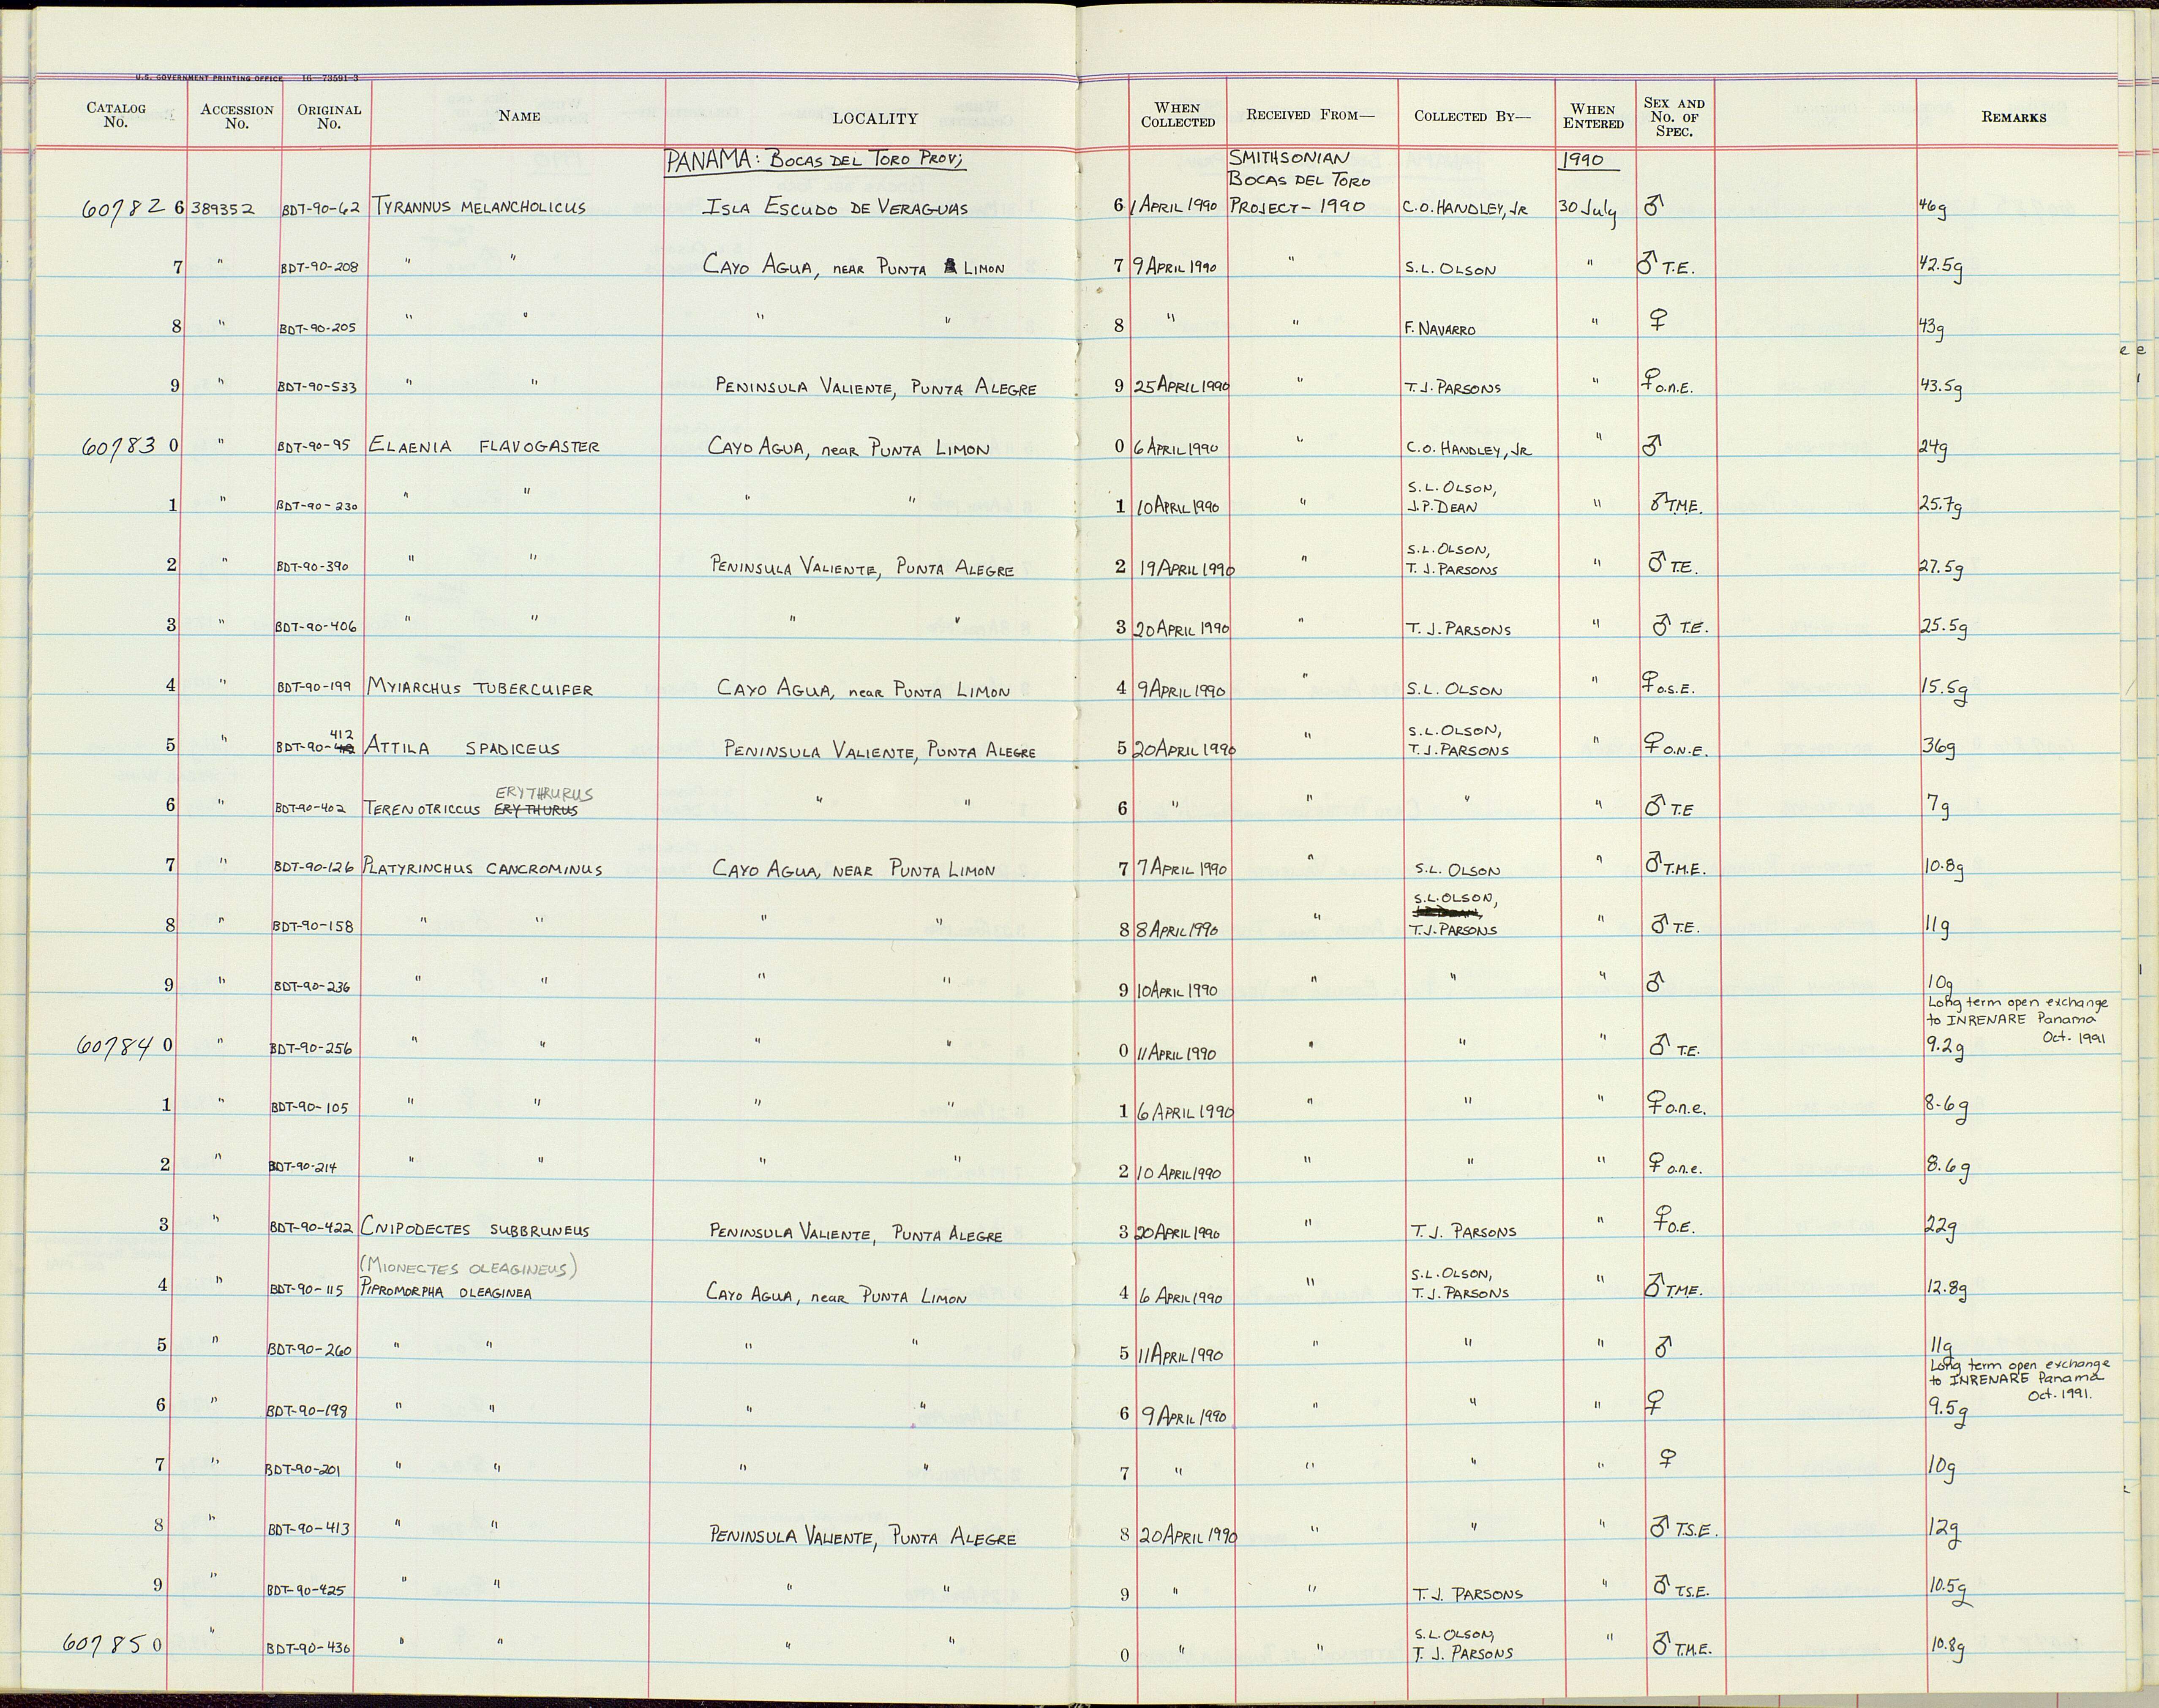 U.S. GOVERNMENT PRINTING OFFICE 16—73591-3
CATALOG No. ACCESSION No. ORIGINAL No. NAME LOCALITY WHEN COLLECTED RECEIVED FROM— COLLECTED BY— WHEN ENTERED SEX AND No. OF SPEC. REMARKS
PANAMA: BOCAS DEL TORO PROV; SMITHSONIAN 1990
BOCAS DEL TORO
607826 389352 BDT-90-62 TYRANNUS MELANCHOLICUS ISLA ESCUDO DE VERAGUAS 6 1 APRIL 1990 PROJECT-1990 C.O. HANDLEY, JR 30 July ♂ 46g
7 " BDT-90-208 " " CAYO AGUA, NEAR PUNTA LIMON 7 9 APRIL 1990 " S.L. OLSON " ♂ T.E. 42.5g
8 " BDT-90-205 " " " " 8 " " F. NAVARRO " ♀ 43g
9 " BDT-90-533 " " PENINSULA VALIENTE, PUNTA ALEGRE 9 25 APRIL 1990 " T.J. PARSONS " ♀ O.n.E. 43.5g
607830 " BDT-90-95 ELAENIA FLAVOGASTER CAYO AGUA, near PUNTA LIMON 0 6 APRIL 1990 " C.O. HANDLEY, JR " ♂ 24g
S.L. OLSON,
1 " BDT-90-230 " " " " 1 10 APRIL 1990 " J.P. DEAN " ♂ T.M.E. 25.7g
S.L. OLSON,
2 " BDT-90-390 " " PENINSULA VALIENTE, PUNTA ALEGRE 2 19 APRIL 1990 " T.J. PARSONS " ♂ T.E. 27.5g
3 " BDT-90-406 " " " " 3 20 APRIL 1990 " T.J. PARSONS " ♂ T.E. 25.5g
4 " BDT-90-199 MYIARCHUS TUBERCUIFER CAYO AGUA, near PUNTA LIMON 4 9 APRIL 1990 " S.L. OLSON " ♀ O.S.E. 15.5g
412 S.L. OLSON,
5 " BDT-90- ATTILA SPADICEUS PENINSULA VALIENTE, PUNTA ALEGRE 5 20 APRIL 1990 " T.J. PARSONS " ♀ O.N.E. 36g
ERYTHRURUS
6 " BDT-90-402 TERENOTRICCUS ERYTHURUS " " 6 " " " " ♂ T.E 7g
7 " BDT-90-126 PLATYRINCHUS CANCROMINUS CAYO AGUA, NEAR PUNTA LIMON 7 7 APRIL 1990 " S.L. OLSON " ♂ T.M.E. 10.8g
S.L. OLSON,
8 " BDT-90-158 " " " " 8 8 APRIL 1990 " T.J. PARSONS " ♂ T.E. 11g
9 " BDT-90-236 " " " " 9 10 APRIL 1990 " " " ♂ 10g
Long term open exchange
to INRENARE Panama
Oct. 1991
607840 " BDT-90-256 " " " " 0 11 APRIL 1990 " " " ♂ T.E. 9.2g
1 " BDT-90-105 " " " " 1 6 APRIL 1990 " " " ♀ o.n.e. 8.6g
2 " BDT-90-214 " " " " 2 10 APRIL 1990 " " " ♀ o.n.e. 8.6g
3 " BDT-90-422 CNIPODECTES SUBBRUNEUS PENINSULA VALIENTE, PUNTA ALEGRE 3 20 APRIL 1990 " T.J. PARSONS " ♀ O.E. 22g
(MIONECTES OLEAGINEUS) S.L. OLSON,
4 " BDT-90-115 PIPROMORPHA OLEAGINEA CAYO AGUA, near PUNTA LIMON 4 6 APRIL 1990 " T.J. PARSONS " ♂ T.M.E. 12.8g
5 " BDT-90-260 " " " " 5 11 APRIL 1990 " " " ♂ 11g
Long term open exchange
to INRENARE Panama
Oct. 1991.
6 " BDT-90-198 " " " " 6 9 APRIL 1990 " " " ♀ 9.5g
7 " BDT-90-201 " " " " 7 " " " " ♀ 10g
8 " BDT-90-413 " " PENINSULA VALIENTE, PUNTA ALEGRE 8 20 APRIL 1990 " " " ♂ T.S.E. 12g
9 " BDT-90-425 " " " " 9 " " T.J. PARSONS " ♂ T.S.E. 10.5g
S.L. OLSON,
607850 " BDT-90-430 " " " " 0 " " T.J. PARSONS " ♂ T.M.E. 10.8g